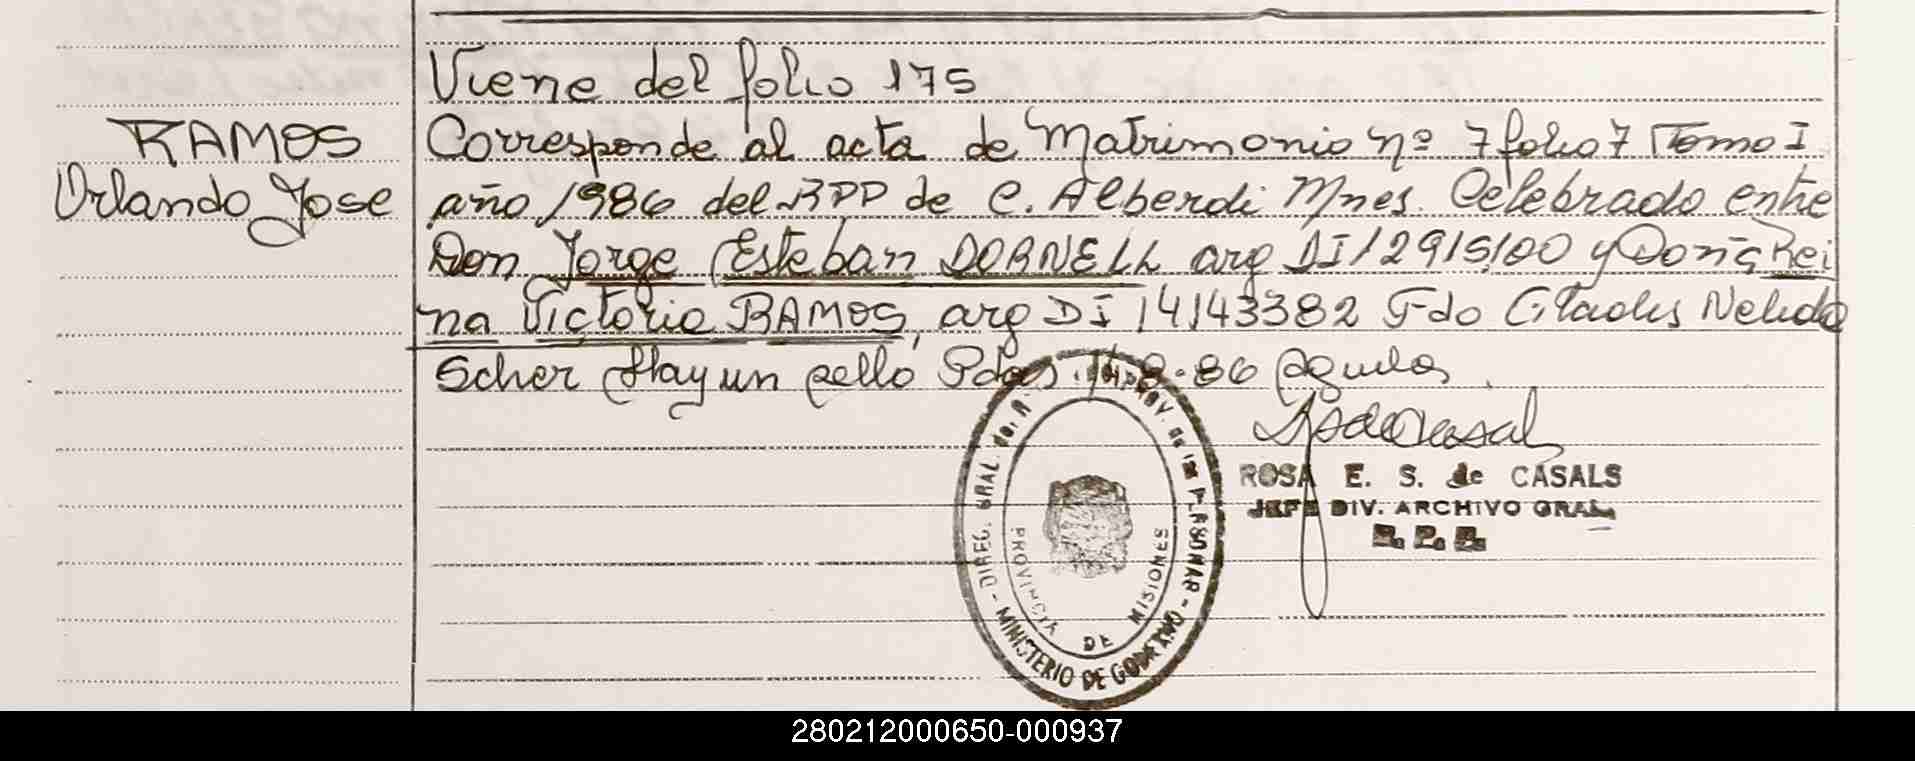 Viene del folio 175
RAMOS
Orlando Jose
Corresponde al acta de Matrimonio nº 7 folio 7 Tomo I
año 1986 del RPP de C. Alberdi Mnes. Celebrado entre
Don Jorge Esteban DORNELL arg DI 12915100 y Doña Rei
na Victoria RAMOS, arg DI 14143382 Fdo Nelida
Scher Hay un sello Pdas 8-86
ROSA E. S. de CASALS
JEFE DIV. ARCHIVO GRAL
R. P. P.
DIREC. GRAL. del R. PROV. de las PERSONAS - MINISTERIO DE GOBIERNO -
PROVINCIA DE MISIONES
280212000650-000937